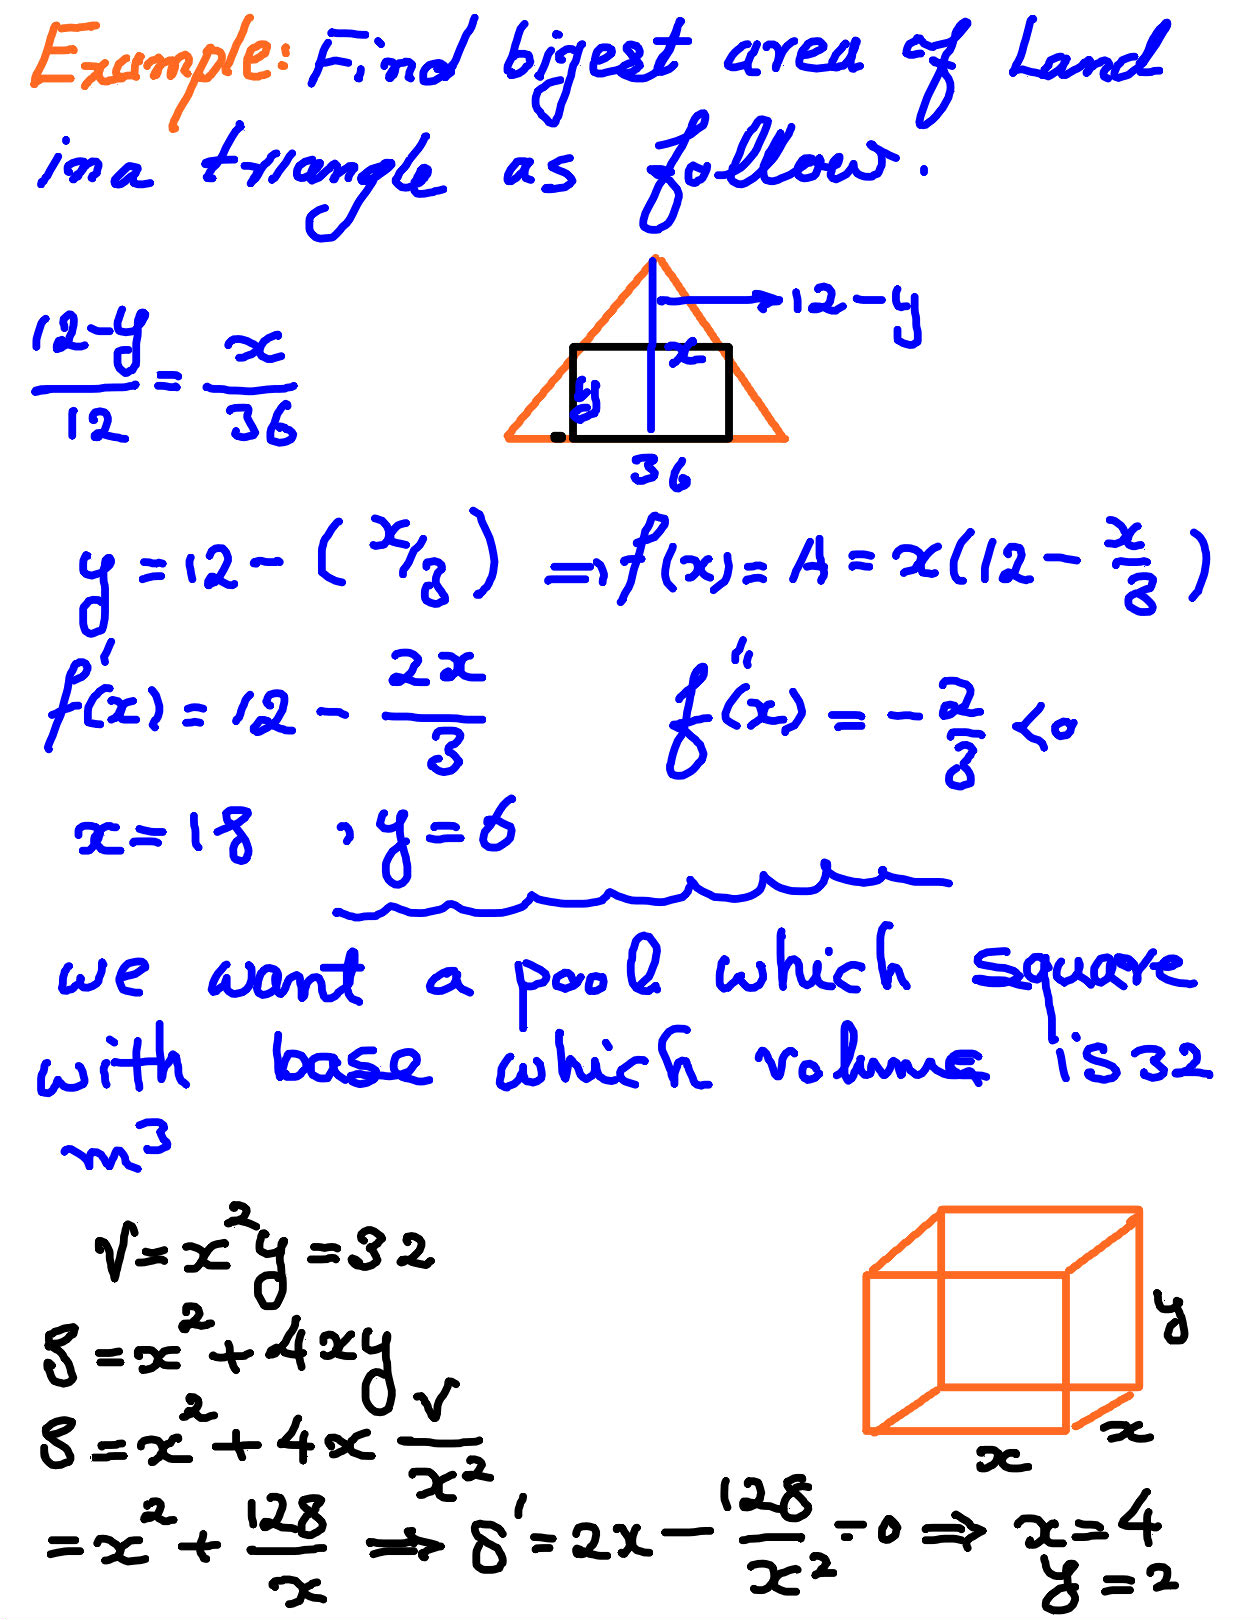 Example: Find bigest area of Land
in a triangle as follow.
12-y/12 = x/36
12-y
x
y
36
y = 12 - (x/3) => f(x) = A = x(12 - x/3)
f'(x) = 12 - 2x/3 f''(x) = -2/3 <0
x = 18 , y = 6
we want a pool which square
with base which volume is 32
m³
V = x²y = 32
S = x² + 4xy
S = x² + 4x V/x²
= x² + 128/x => S' = 2x - 128/x² = 0 => x = 4
y = 2
y
x
x